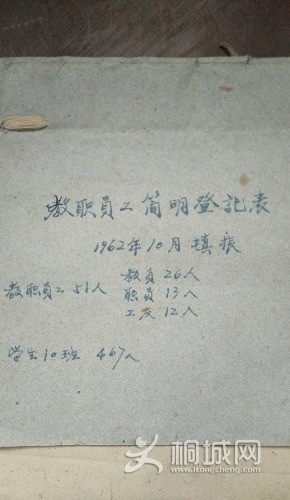 教职员工简明登記表
1962年10月填报
教职员工51人
教员26人
职员13人
工友12人
学生10班 467人
桐城网
www.itongcheng.com